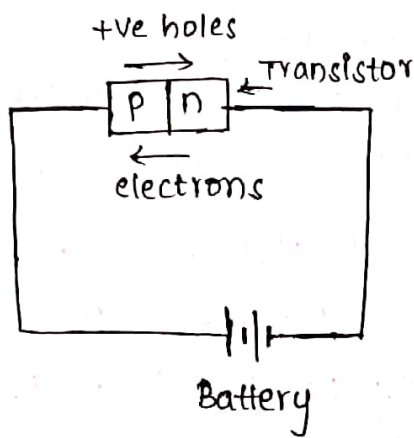 +ve holes
Transistor
p n
electrons
Battery